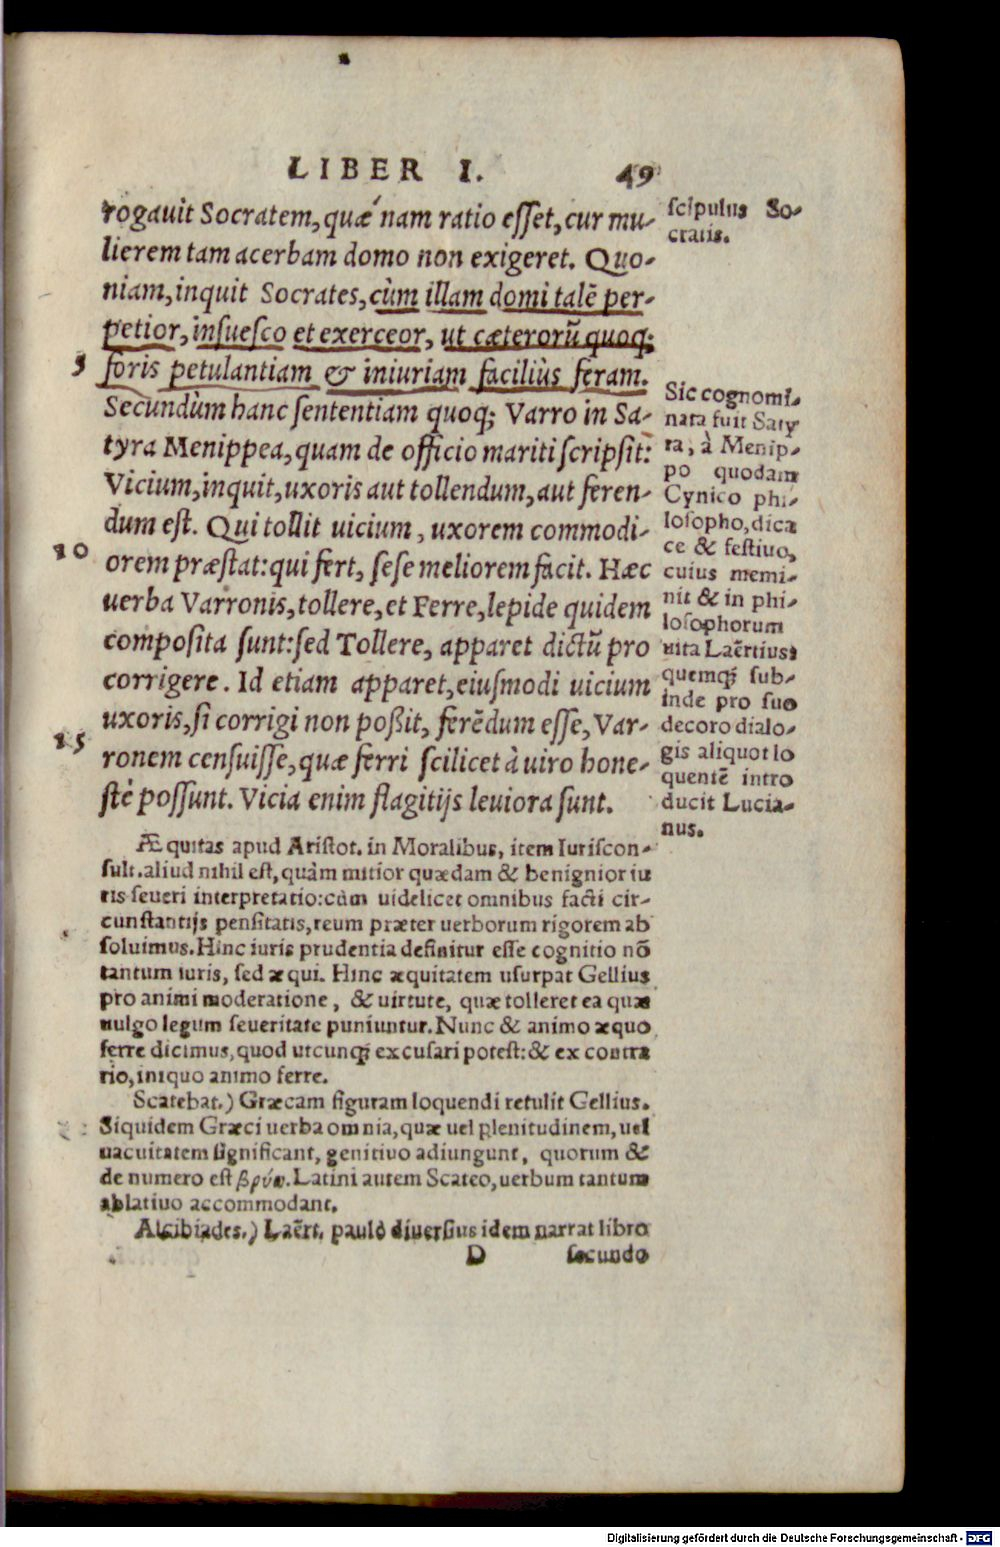 LIBER I. 49
rogauit Socratem, quæ nam ratio eſſet, cur mu-
lierem tam acerbam domo non exigeret. Quo-
niam, inquit Socrates, cùm illam domi talē per-
petior, inſueſco et exerceor, ut cæterorũ quoq;
foris petulantiam & iniuriam faciliùs feram.
Secundùm hanc ſententiam quoq; Varro in Sa-
tyra Menippea, quam de officio mariti ſcripſit:
Vicium, inquit, uxoris aut tollendum, aut feren-
dum eſt. Qui tollit uicium, uxorem commodi-
orem præſtat: qui fert, ſeſe meliorem facit. Hæc
uerba Varronis, tollere, et Ferre, lepide quidem
compoſita ſunt: ſed Tollere, apparet dictũ pro
corrigere. Id etiam apparet, eiuſmodi uicium
uxoris, ſi corrigi non poßit, ferēdum eſſe, Var-
ronem cenſuiſſe, quæ ferri ſcilicet à uiro hone-
ſtè poſſunt. Vicia enim flagitijs leuiora ſunt.
5
10
15
ſcipulus So-
cratis.
Sic cognomi-
nata fuit Saty
ra, à Menip-
po quodam
Cynico phi-
loſopho, dica
ce & feſtiuo,
cuius memi-
nit & in phi-
loſophorum
uita Laërtius:
quemq; ſub-
inde pro ſuo
decoro dialo-
gis aliquot lo
quentē intro
ducit Lucia-
nus.
Æquitas apud Ariſtot. in Moralibus, item Iuriſcon-
ſult. aliud nihil eſt, quàm mitior quædam & benignior iu
ris ſeueri interpretatio: cùm uidelicet omnibus facti cir-
cunſtantijs penſitatis, reum præter uerborum rigorem ab
ſoluimus. Hinc iuris prudentia definitur eſſe cognitio nō
tantum iuris, ſed æqui. Hinc æquitatem uſurpat Gellius
pro animi moderatione, & uirtute, quæ tolleret ea quæ
uulgo legum ſeueritate puniuntur. Nunc & animo æquo
ferre dicimus, quod utcunq; excuſari poteſt: & ex contra
rio, iniquo animo ferre.
Scatebat.) Græcam figuram loquendi retulit Gellius.
Siquidem Græci uerba omnia, quæ uel plenitudinem, uel
uacuitatem ſignificant, genitiuo adiungunt, quorum &
de numero eſt βρύω. Latini autem Scateo, uerbum tantum
ablatiuo accommodant.
Alcibiades.) Laërt. paulò diuerſius idem narrat libro
D ſecundo
Digitalisierung gefördert durch die Deutsche Forschungsgemeinschaft - DFG